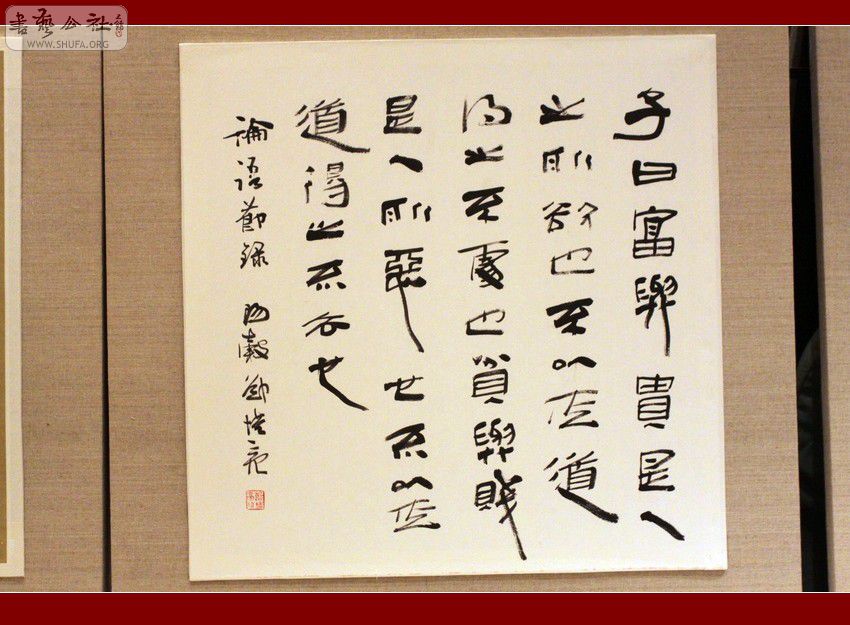 書藝公社
WWW.SHUFA.ORG
子曰富與貴是人
之所欲也不以其道
得之不處也貧與賤
是人所惡也不以其
道得之不去也
論語節錄 陽穀鄭培亮